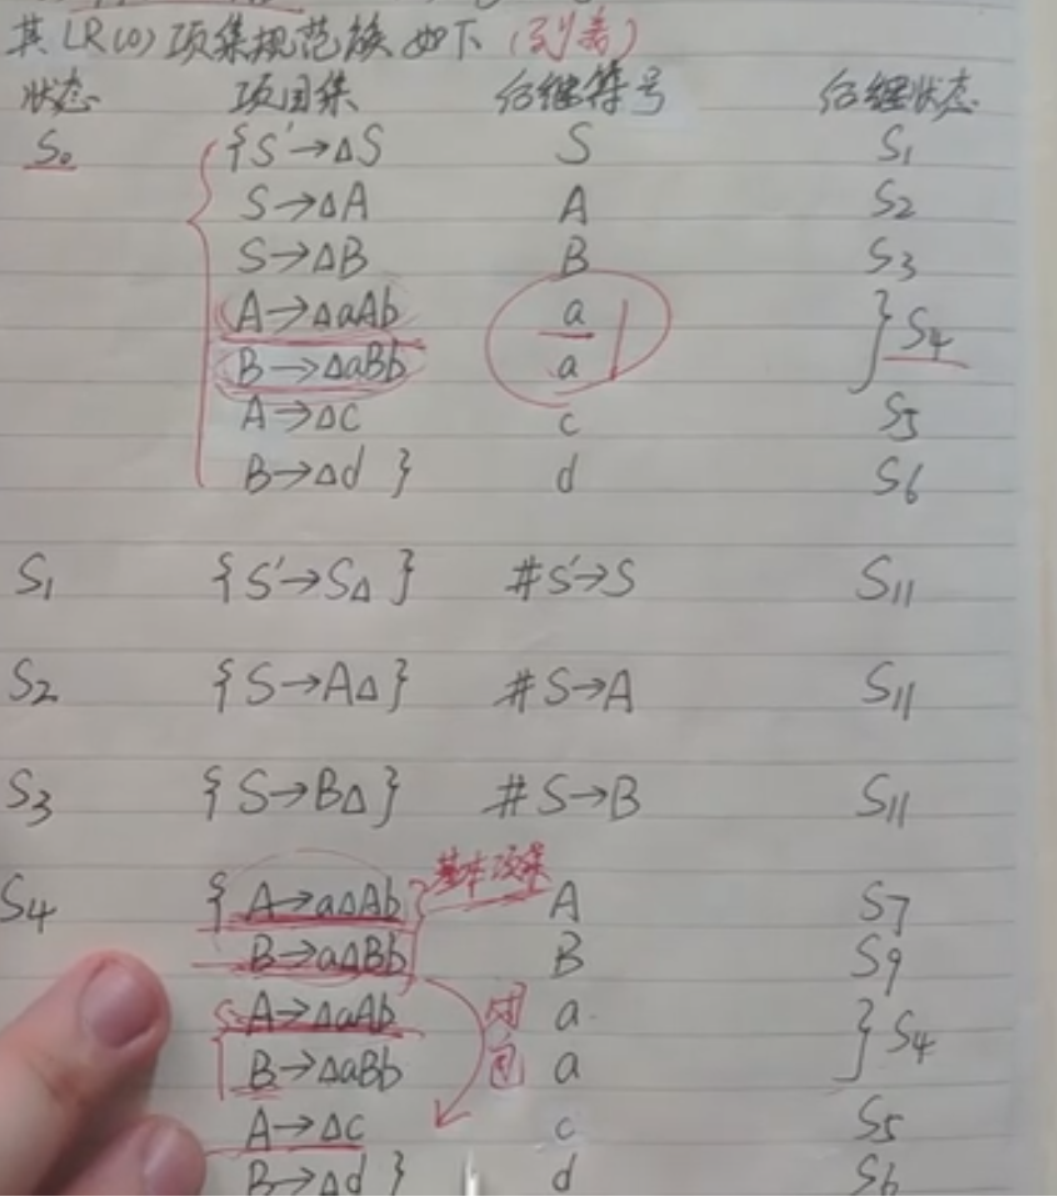 其LR(0)项集规范族如下(列表)
状态 项目集 后继符号 后继状态
S₀ {S'→ΔS S S₁
S→ΔA A S₂
S→ΔB B S₃
A→ΔaAb a
B→ΔaBb a } S₄
A→Δc c S₅
B→Δd } d S₆
S₁ {S'→SΔ } #S'→S S₁₁
S₂ {S→AΔ} #S→A S₁₁
S₃ {S→BΔ} #S→B S₁₁
基本项集
S₄ { A→aΔAb } A S₇
B→aΔBb B S₉
A→ΔaAb 闭 a
B→ΔaBb 包 a } S₄
A→Δc c S₅
B→Δd } d S₆